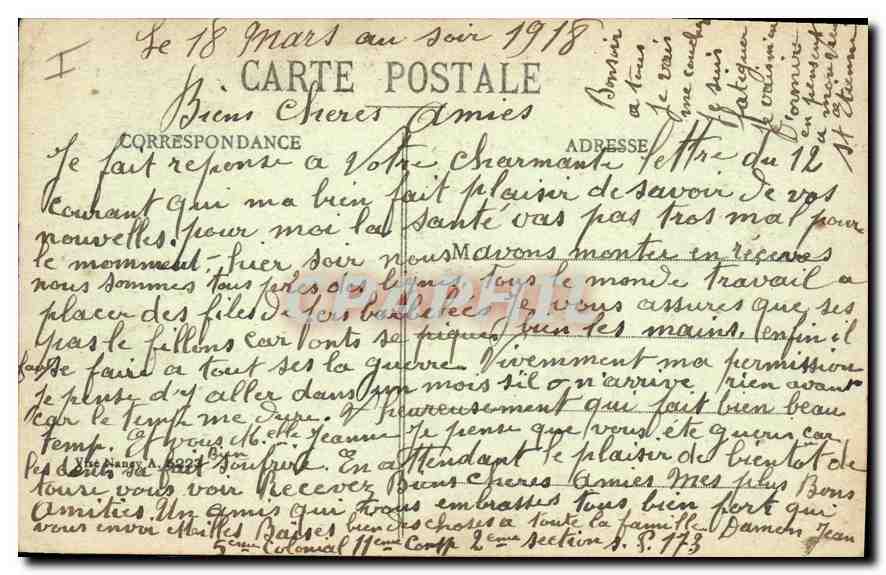 I
Le 18 Mars au soir 1918
CARTE POSTALE
Biens cheres amies
CORRESPONDANCE
ADRESSE
Je fait reponse a Votre charmante lettre du 12
courant qui ma bien fait plaisir de savoir de vos
nouvelles. pour moi la santé vas pas tros mal pour
le momment, hier soir nous avons monter en réserves
nous sommes tous près des lignes tous le monde travail a
placer des files de fers barbelées, Je vous assures que ses
pas le fillons car onts se piques bien les mains, enfin il
faut se faire a tout ses la guerre. Vivemment ma permission
Je pense d'y aller dans un mois s'il n'arrive rien avant
car le temps me dure. heureusement qui fait bien beau
temp. Et vous M.elle Jeanne Je pense que vous éte gueris car
les dents sa fait Bien soufrire. En attendant le plaisir de bientot de
Vise Nancy A.
toure vous voir Recevez Biens cheres amies Mes plus Bons
Amitiés. Un amis qui vous embrasses tous, bien port qui
vous envoi Meilles Baises bien des choses a toute la famille Damon Jean
5eme Colonial 11eme Comp 2eme section s. P. 173
Bonsoir
a tous
Je vais
me coucher
Je suis
fatiguer
Je vais mieu
Dormire
en pensent
a mon vieu
St Etienne